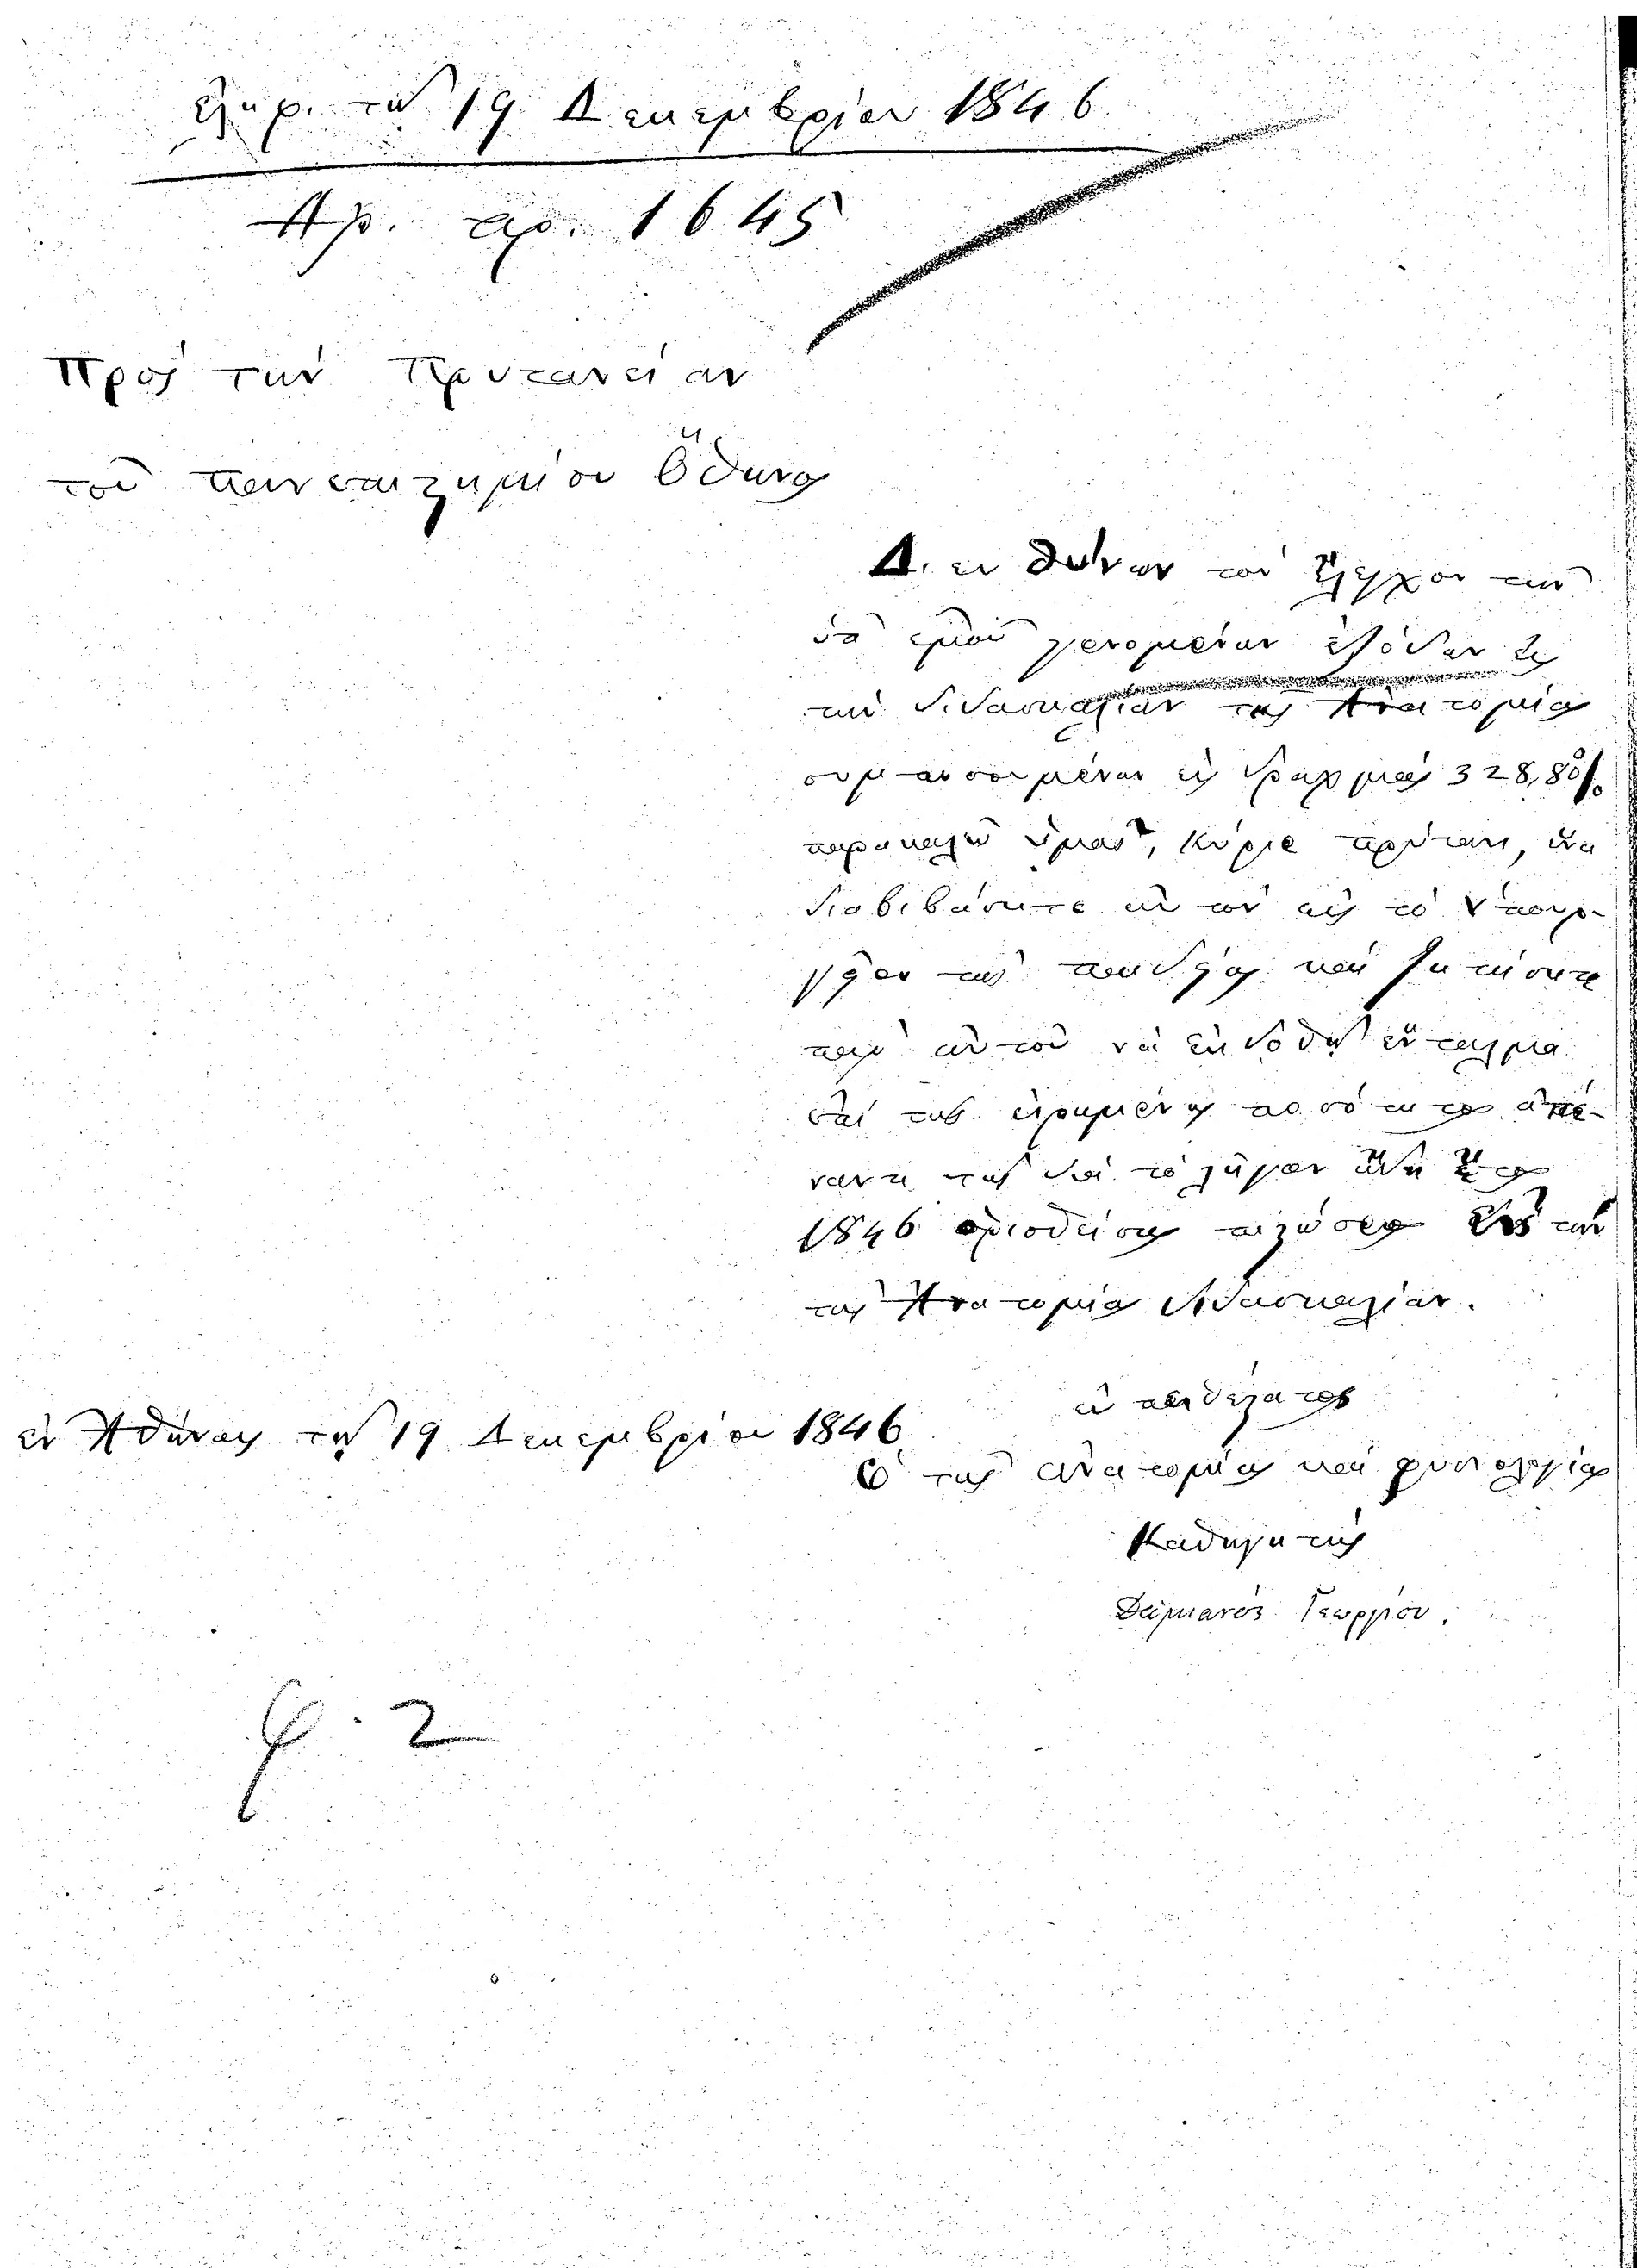 ἐλήφ. τῇ 19 Δεκεμβρίου 1846
Ἀρ. πρ. 1645
Πρὸς τὴν Πρυτανείαν
τοῦ πανεπιστημίου Ὄθωνος
Διευθύνων τὸν ἔλεγχον τῶν
ὑπ' ἐμοῦ γενομένων ἐξόδων εἰς
τὴν διδασκαλίαν τῆς Ἀνατομίας
συμποσουμένων εἰς δραχμὰς 328,80/.
παρακαλῶ ὑμᾶς, Κύριε πρύτανι, ἵνα
διαβιβάσητε αὐτὸν εἰς τὸ Ὑπουρ-
γεῖον τῆς παιδείας καὶ ζητήσητε
παρ' αὐτοῦ νὰ ἐκδοθῇ ἔνταλμα
ἐπὶ τῆς εἰρημένης ποσότητος ἀπέ-
ναντι τῆς διὰ τὸ λῆγον ἤδη ἔτος
1846 ὁρισθείσης πιστώσεως διὰ τὴν
τῆς Ἀνατομίας διδασκαλίαν.
εὐπειθέστατος
ἐν Ἀθήναις τῇ 19 Δεκεμβρίου 1846
Ὁ τῆς ἀνατομίας καὶ φυσιολογίας
Καθηγητὴς
Δαμιανὸς Γεωργίου.
φ. 2